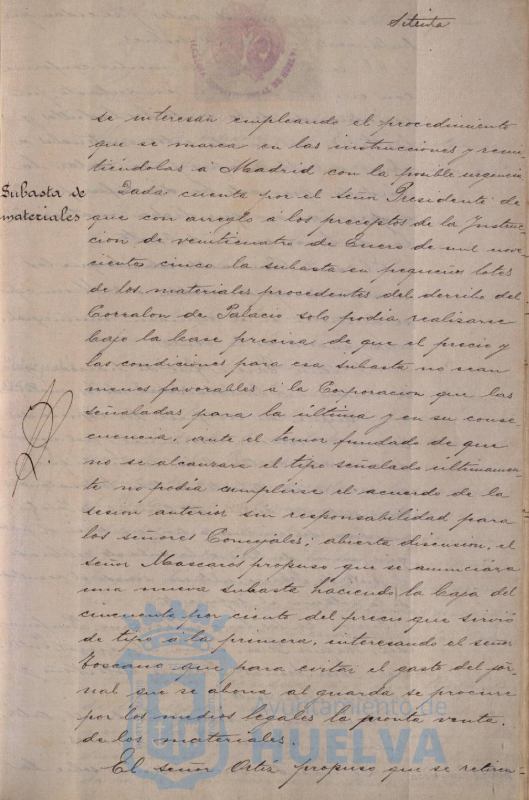 Setenta
se interesan empleando el procedimiento
que se marca en las instrucciones y remi-
tiéndolas á Madrid con la posible urgencia
Subasta de
materiales
Dada cuenta por el señor Presidente de
que con arreglo á los preceptos de la Instruc-
cion de veinticuatro de Enero de mil nove-
cientos cinco la subasta en pequeños lotes
de los materiales procedentes del derribo del
Corralon de Palacio solo podia realizarse
bajo la base precisa de que el precio y
las condiciones para esa subasta no sean
menos favorables á la Corporacion que las
señaladas para la última y en su conse-
cuencia, ante el temor fundado de que
no se alcanzara el tipo señalado últimamen-
te no podia cumplirse el acuerdo de la
sesion anterior sin responsabilidad para
los señores Concejales; abierta discusion, el
señor Mascarós propuso que se anunciára
una nueva subasta haciendo la baja del
cincuenta por ciento del precio que sirvió
de tipo á la primera, interesando el señor
Toscano que para evitar el gasto del jor-
nal que se abona al guarda se procure
por los medios legales la pronta venta
de los materiales.
El señor Ortiz propuso que se retiren
Ayuntamiento de
HUELVA